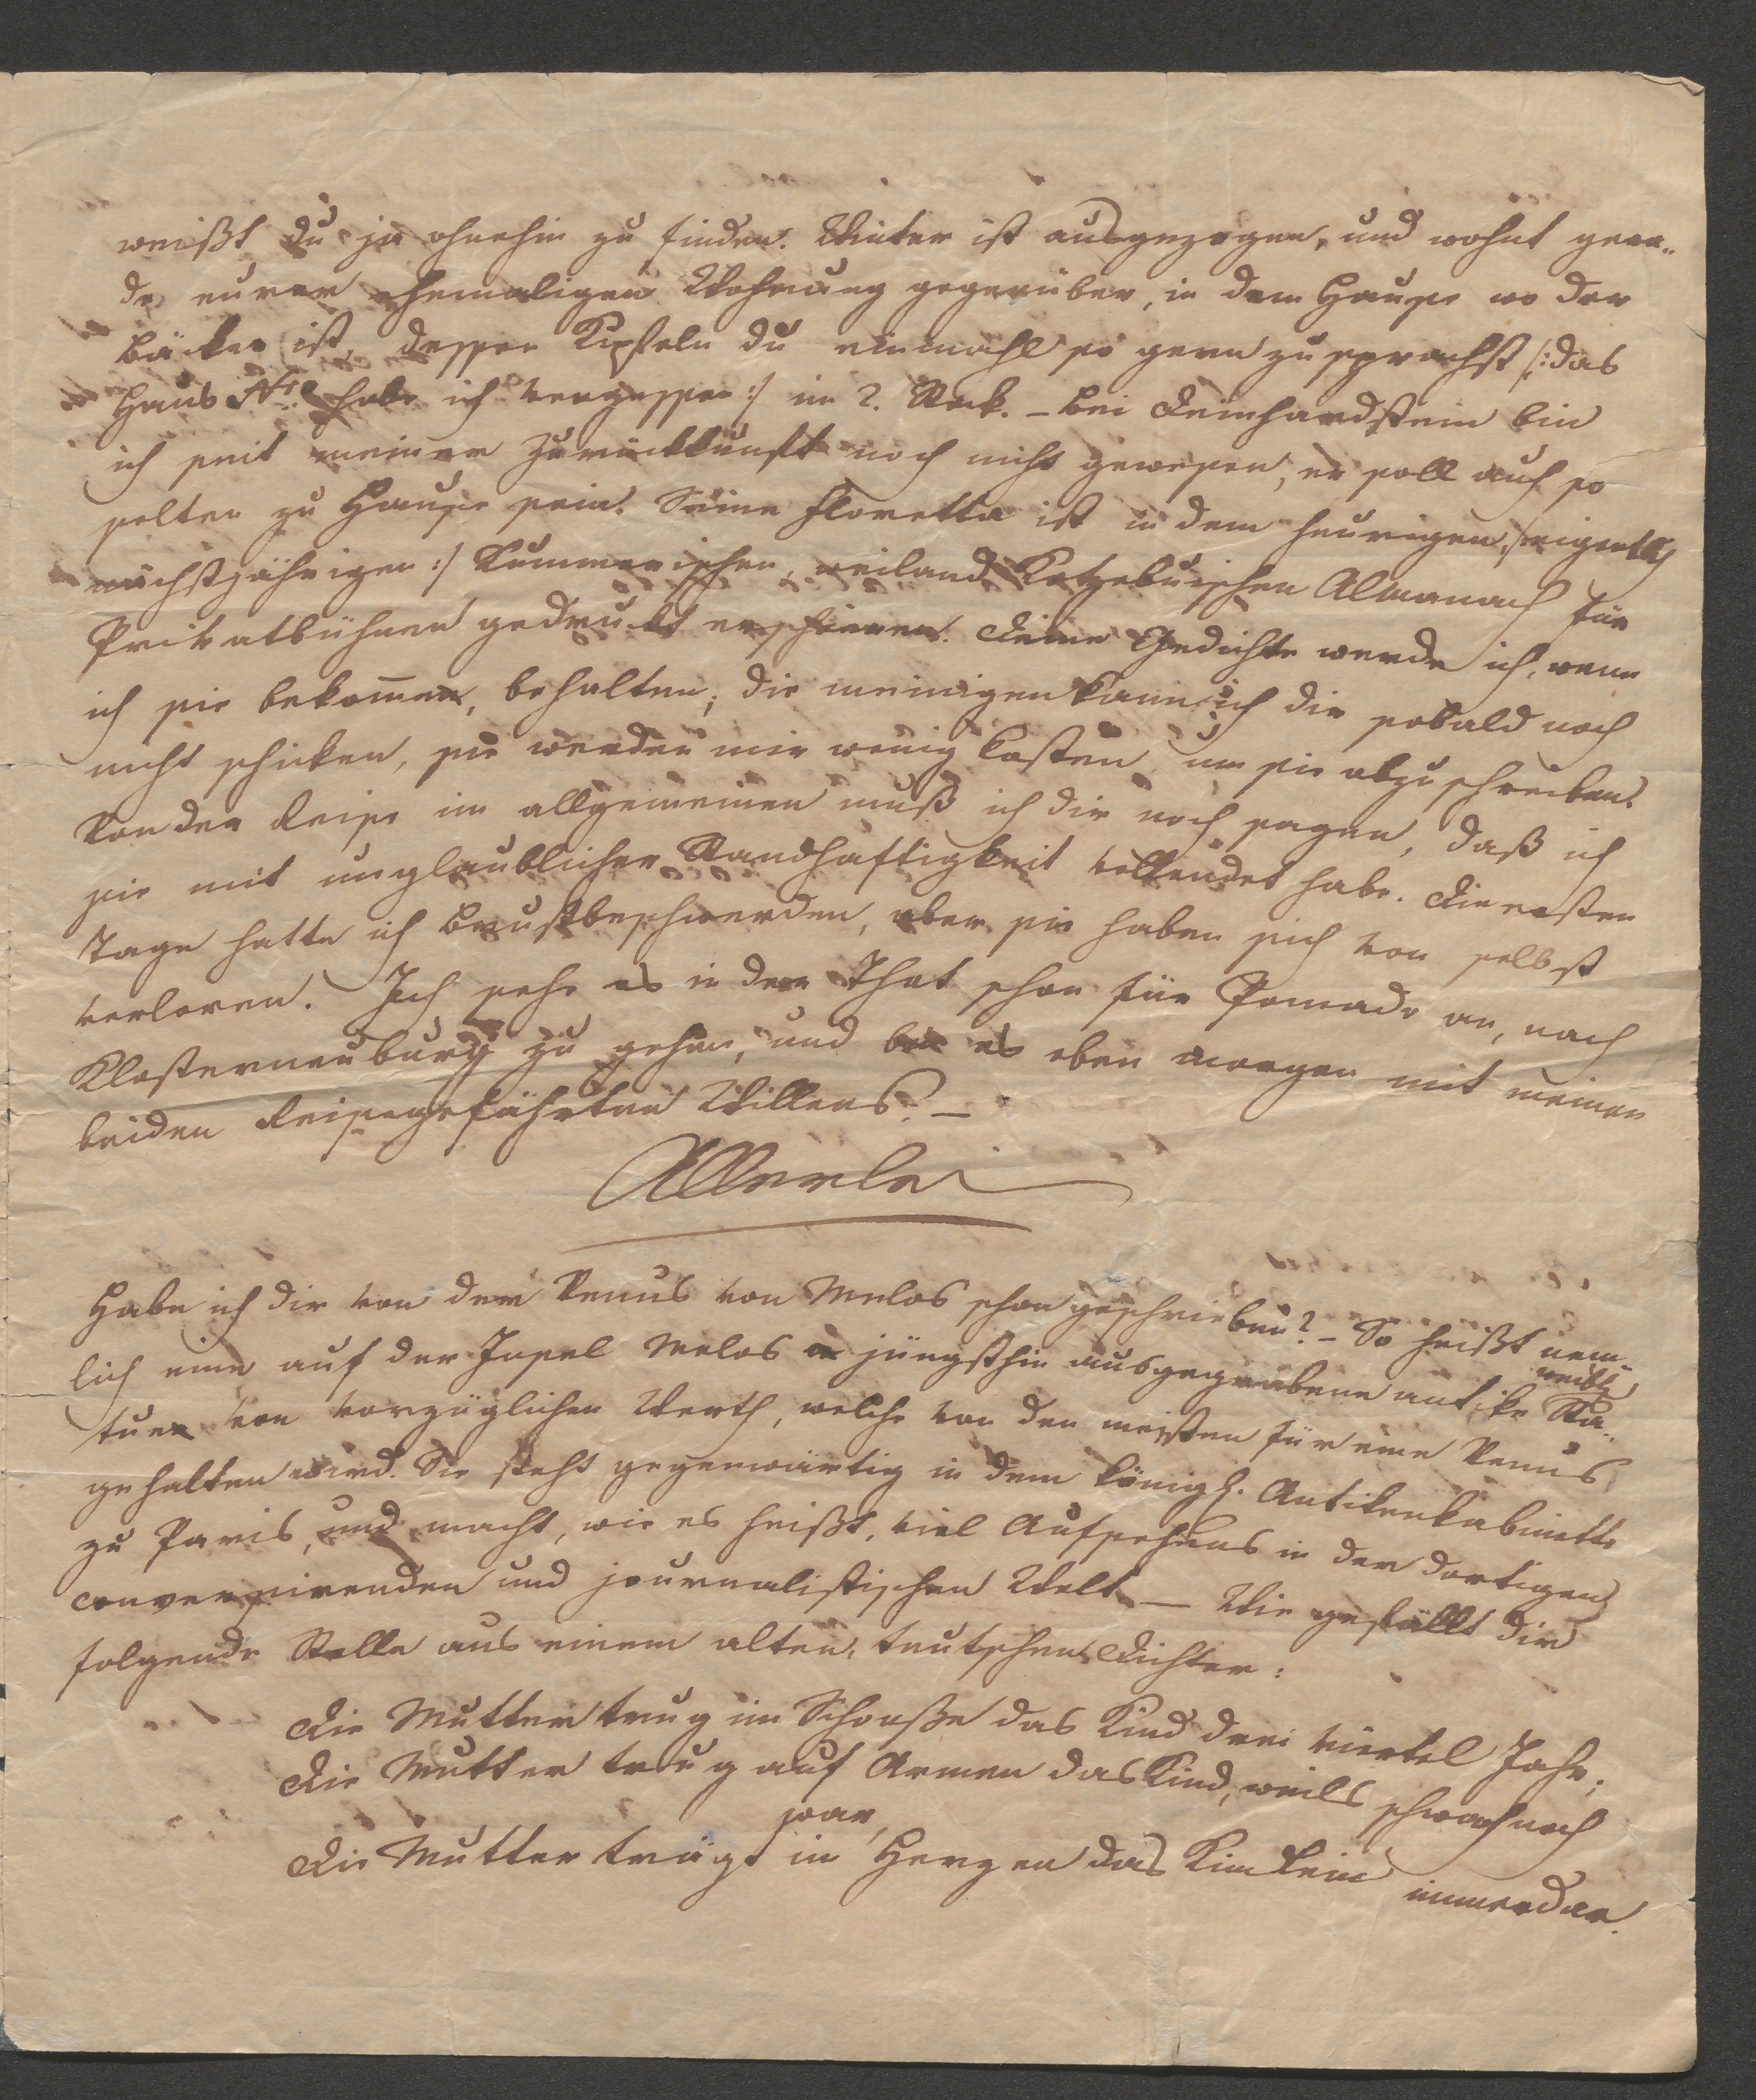 weißt du ja ohnehin zu finden. Winter ist ausgezogen, und wohnt gera-
de eurer ehemaligen Wohnung gegenüber, in dem Hause wo der
Bäcker ist, dessen Kipfeln du einmahl so gern zusprachst /: das
Haus Nr. habe ich vergessen :/ im 2. Stock. – Bei Deinhardstein bin
ich seit meiner Zurückkunft noch nicht gewesen, er soll auch so
selten zu Hause sein. Seine Floretta ist in dem heurigen /: eigentlich
nächstjährigen :/ Kummerischen, weiland Kotzebuischen Almanach für
Privatbühnen gedruckt erschienen. Deine Gedichte werde ich, wenn
ich sie bekomme, behalten; die meinigen kann ich dir sobald noch
nicht schicken, sie werden mir wenig kosten um sie abzuschreiben.
Von der Reise im allgemeinen muß ich dir noch sagen, daß ich
sie mit unglaublicher Standhaftigkeit vollendet habe. Die ersten
Tage hatte ich Brustbeschwerden, aber sie haben sich von selbst
verloren. Ich sehe es in der That schon für Pomade an, nach
Klosterneuburg zu gehen, und bin es eben morgen mit meinen
beiden Reisegefährten Willens. –
Allerlei
Habe ich dir von der Venus von Melos schon geschrieben? – So heißt nem-
lich eine auf der Insel Melos jüngsthin ausgegrabene antike weibl. Sta-
tue von vorzüglichen Werth, welche von den meisten für eine Venus
gehalten wird. Sie steht gegenwärtig in dem königl. Antikenkabinette
zu Paris, und macht, wie es heißt, viel Aufsehens in der dortigen
conversirenden und journalistischen Welt – Wie gefällt dir
folgende Stelle aus einem alten, teutschen Dichter:
Die Mutter trug im Schooße das Kind drei viertel Jahr;
Die Mutter trug auf Armen das Kind, weils schwach noch
war,
Die Mutter trägt im Herzen das Kindlein immerdar.